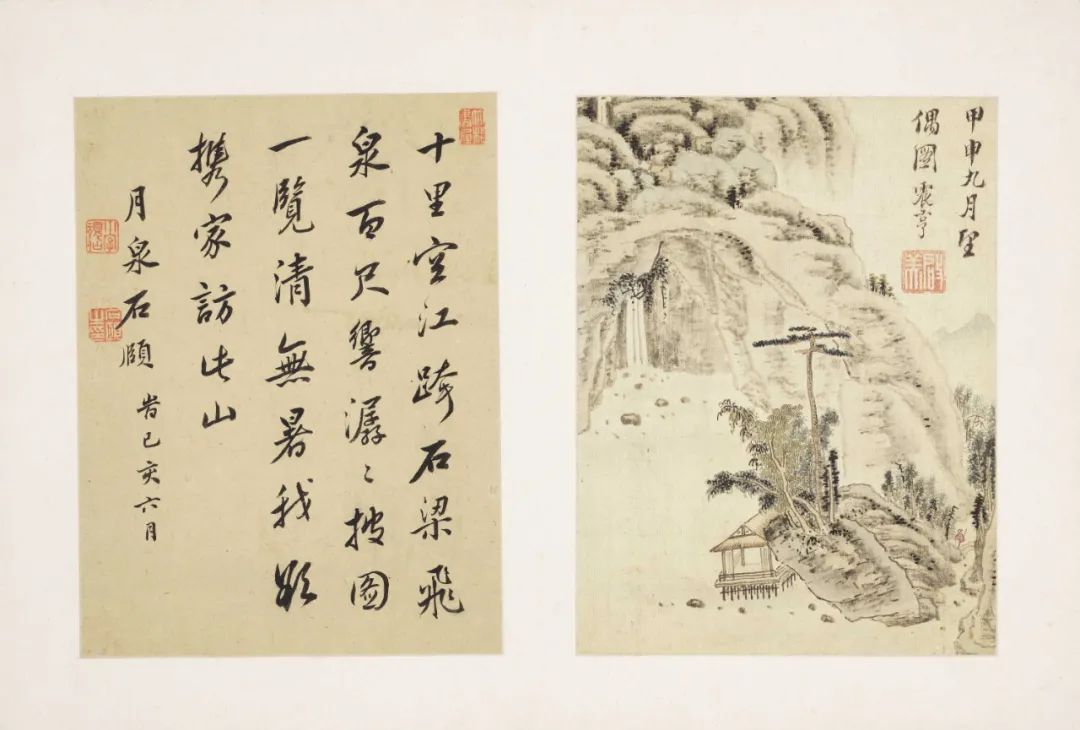 甲申九月望
偶圖震亨
十里空江跨石梁飛
泉百尺響潺〻披圖
一覽清無暑我欲
携家訪此山
月泉石頤 旹己亥六月